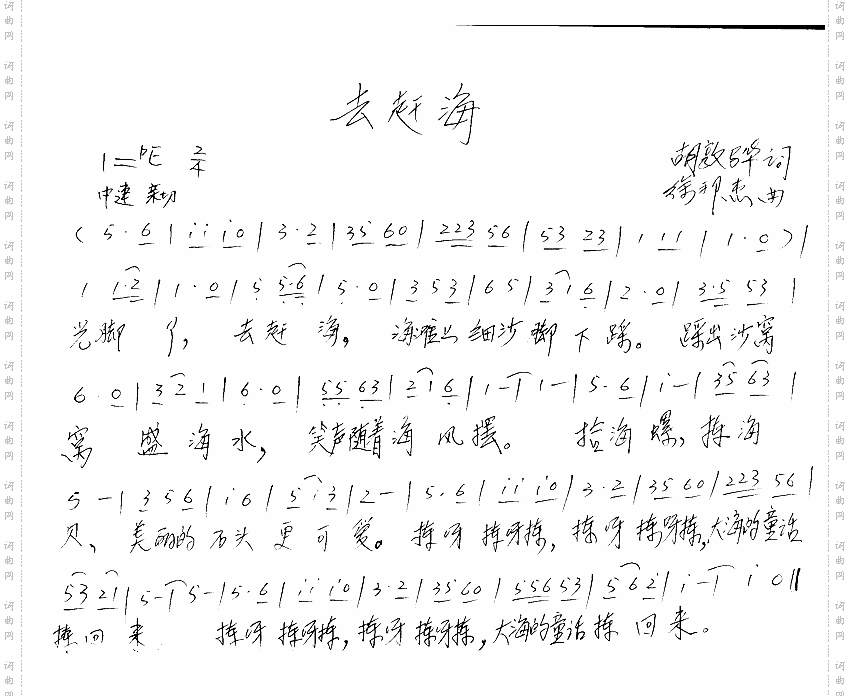 去赶海
1=bE 2/4
胡敦骅词
中速 亲切
徐邦杰曲
( 5·6 | i i i 0 | 3·2 | 35 60 | 223 56 | 53 23 | 1 11 | 1·0 ) |
1 1·2 | 1·0 | 5 5·6 | 5·0 | 3 53 | 65 | 3 1 6 | 2·0 | 3·5 53 |
光脚丫, 去赶海, 海滩上细沙脚下踩。踩出沙窝
6·0 | 3 2 1 | 6·0 | 55 63 | 2 1 6 | 1- | 1- | 5·6 | i- | 35 63 |
窝盛海水, 笑声随着海风摆。拾海螺, 拣海
5- | 3 56 | i 6 | 5 i 3 | 2- | 5·6 | i i i 0 | 3·2 | 35 60 | 223 56 |
贝, 美丽的石头更可爱。拣呀拣呀拣, 拣呀拣呀拣, 大海的童话
53 21 | 5- | 5- | 5·6 | i i i 0 | 3·2 | 35 60 | 556 53 | 5 6 2 | i- | i 0 ||
拣回来 拣呀拣呀拣, 拣呀拣呀拣, 大海的童话拣回来。
词曲网